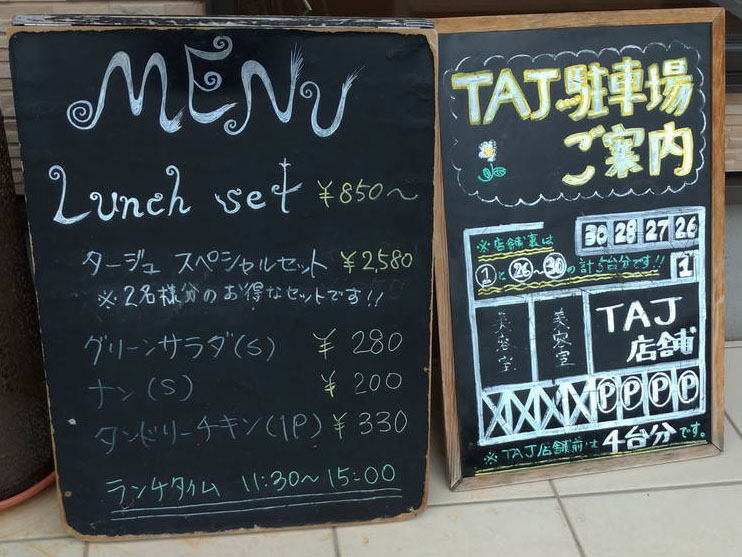 MENU
Lunch set ¥850〜
タージュ スペシャルセット ¥2,580
※2名様分のお得なセットです!!
グリーンサラダ(S) ¥280
ナン(S) ¥200
タンドリーチキン(1P) ¥330
ランチタイム 11:30〜15:00
TAJ駐車場
ご案内
30 28 27 26
※店舗裏は
①と㉖〜㉚の計5台分です!!
1
美容室
美容室
TAJ
店舗
X X X X P P P P
※TAJ店舗前は4台分です。